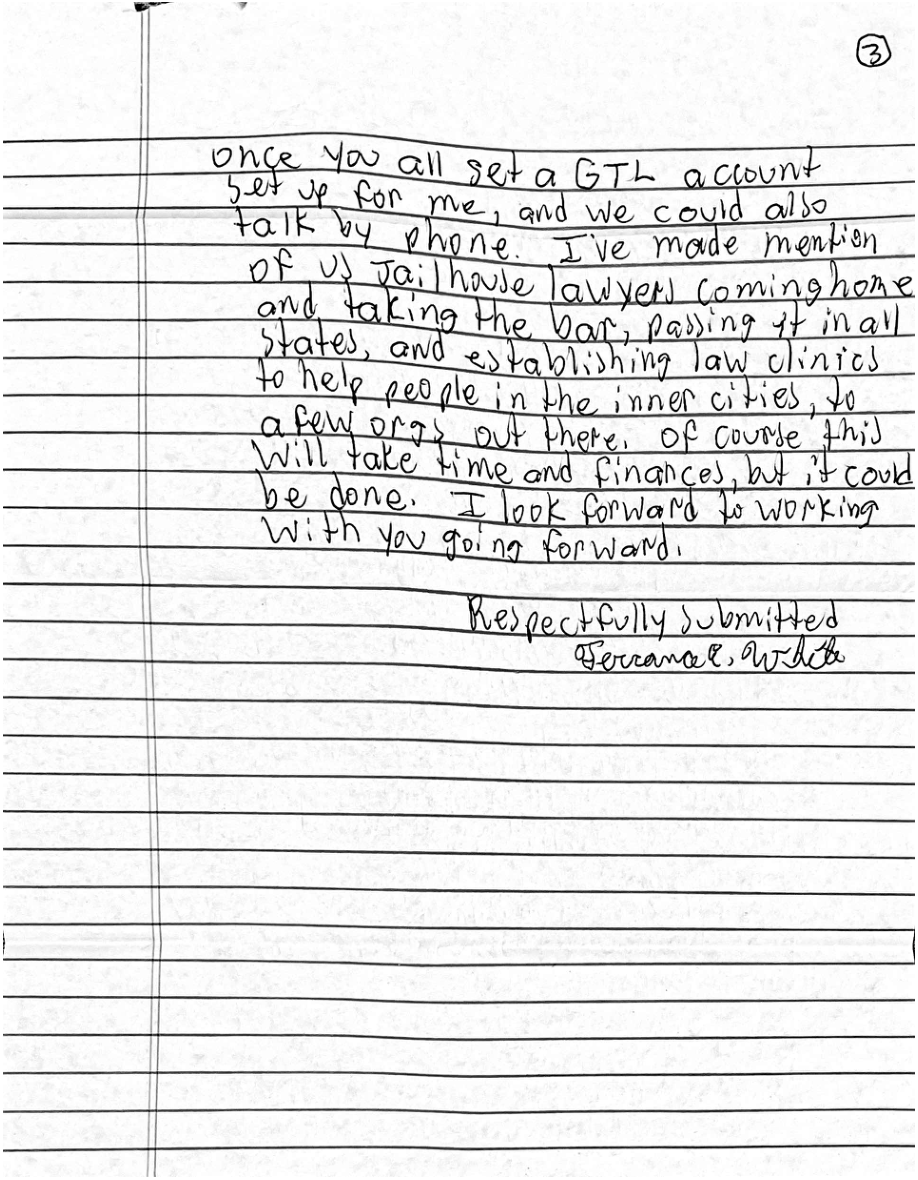 3
once you all set a GTL account
set up for me, and we could also
talk by phone. I've made mention
of us Jailhouse lawyers coming home
and taking the bar, passing it in all
states, and establishing law clinics
to help people in the inner cities, to
a few orgs out there. Of course this
will take time and finances, but it could
be done. I look forward to working
with you going forward.
Respectfully submitted
Terrance E. White